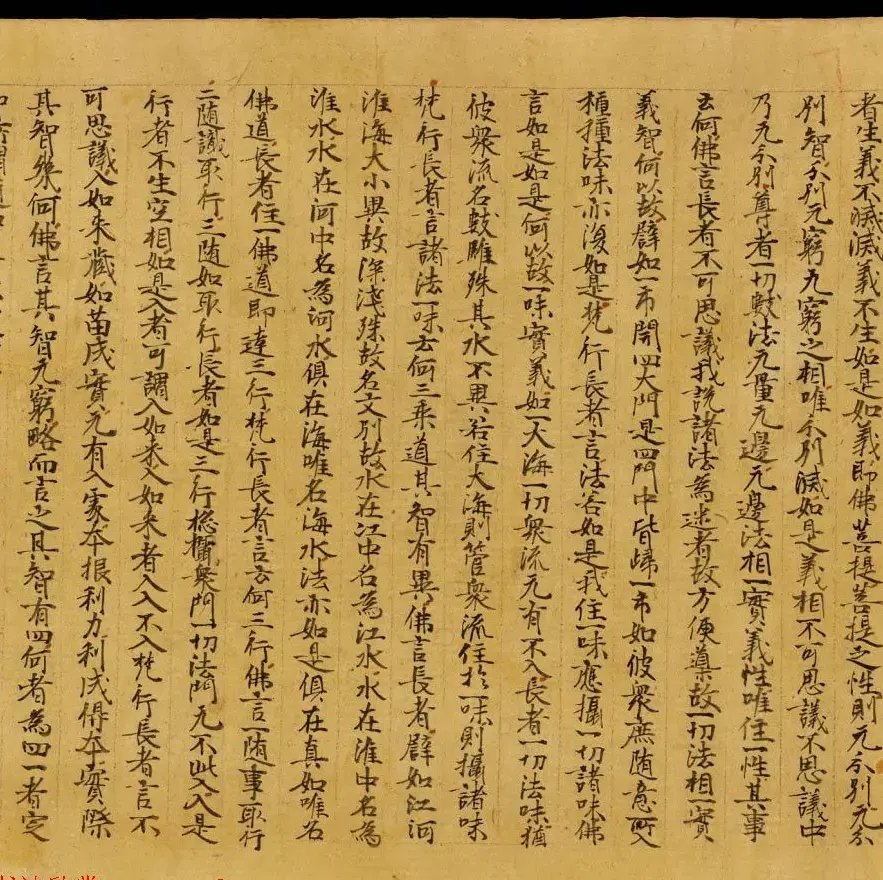 者生義不滅滅義不生如是如義即佛菩提菩提之性則无分別无分
別智分別无窮无窮之相唯分別滅如是義相不可思議不思議中
乃无分別尊者一切數法无量无邊无邊法相一實義性唯住一性其事
云何佛言長者不可思議我說諸法為迷者故方便導故一切法相一實
義智何以故譬如一市開四大門是四門中皆歸一市如彼衆庶随意所入
種種法味亦復如是梵行長者言法若如是我住一味應攝一切諸味佛
言如是如是何以故一味實義如一大海一切衆流无有不入長者一切法味猶
彼衆流名數雖殊其水不異若住大海則管衆流住於一味則攝諸味
梵行長者言諸法一味云何三乘道其智有異佛言長者譬如江河
淮海大小異故深淺殊故名文別故水在江中名為江水水在淮中名為
淮水水在河中名為河水俱在海唯名海水法亦如是俱在真如唯名
佛道長者住一佛道即達三行梵行長者言云何三行佛言一随事取行
二随識取行三随如取行長者如是三行惣攝衆門一切法門无不此入入是
行者不生空相如是入者可謂入如来入如来者入入不入梵行長者言不
可思議入如来藏如苗成實无有入處夲根利力利成得夲實際
其智幾何佛言其智无窮略而言之其智有四何者為四一者定